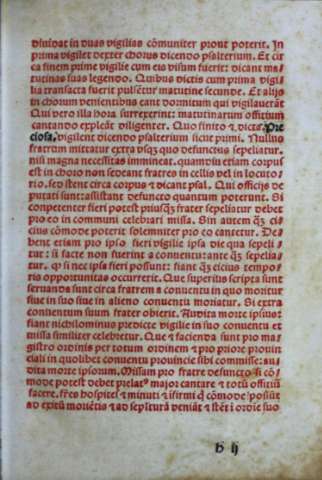 diuidat in duas vigilias cōmuniter prout poterit. In
prima vigilet dexter chorus dicendo psalterium. Et cir
ca finem prime vigilie cum eis visum fuerit: dicant ma/
tutinas suas legendo. Quibus dictis cum prima vigi/
lia transacta fuerit pulsētur matutine secunde. Et alijs
in chorum venientibus eant dormitum qui vigilauerāt
Qui vero illa hora surrexerint: matutinarum officium
cantando expleāt diligenter. Quo finito & dicta: Pre
ciosa. vigilent dicendo psalterium sicut primi. Nullus
fratrum mittatur extra vsq̄ quo defunctus sepeliatur.
nisi magna necessitas immineat. quamdiu etiam corpus
est in choro non sedeant fratres in cellis vel in locuto/
rio. sed stent circa corpus & dicant psal. Qui officijs de
putati sunt: assistant defuncto quantum poterunt. Si
competenter fieri potest priusq̄ frater sepeliatur debet
pro eo in communi celebrari missa. Sin autem q̄ ci/
cius cōmode poterit solemniter pro eo cantetur. De/
bent etiam pro ipso fieri vigilie ipsa die qua sepeli
tur: si facte non fuerint a conuentu: ante q̄ sepelia/
tur. ꝙ si nec ipsa fieri possunt: fiant q̄ cicius tempo/
ris opportunitas occurrerit. Que superius scripta sunt
seruanda sunt circa fratrem a conuentu in quo moritur
siue in suo siue in alieno conuentu moriatur. Si extra
conuentum suum frater obierit. Audita morte ipsius:
fiant nichilominus predicte vigilie in suo conuentu et
missa similiter celebretur. Que & facienda sunt pro ma/
gistro ordinis per totum ordinem & pro priore prouin
ciali in quolibet conuentu prouincie sibi commisse: au/
dita morte ipsorum. Missam pro fratre defuncto si cō/
mode potest debet prelatꝰ major cantare & totū officiū
facere. frēs hospites & minuti & ifirmi q̄ cōmode possūt
ad exitū moriētis & ad sepulturā veniāt & stēt i ordie suo
b ij